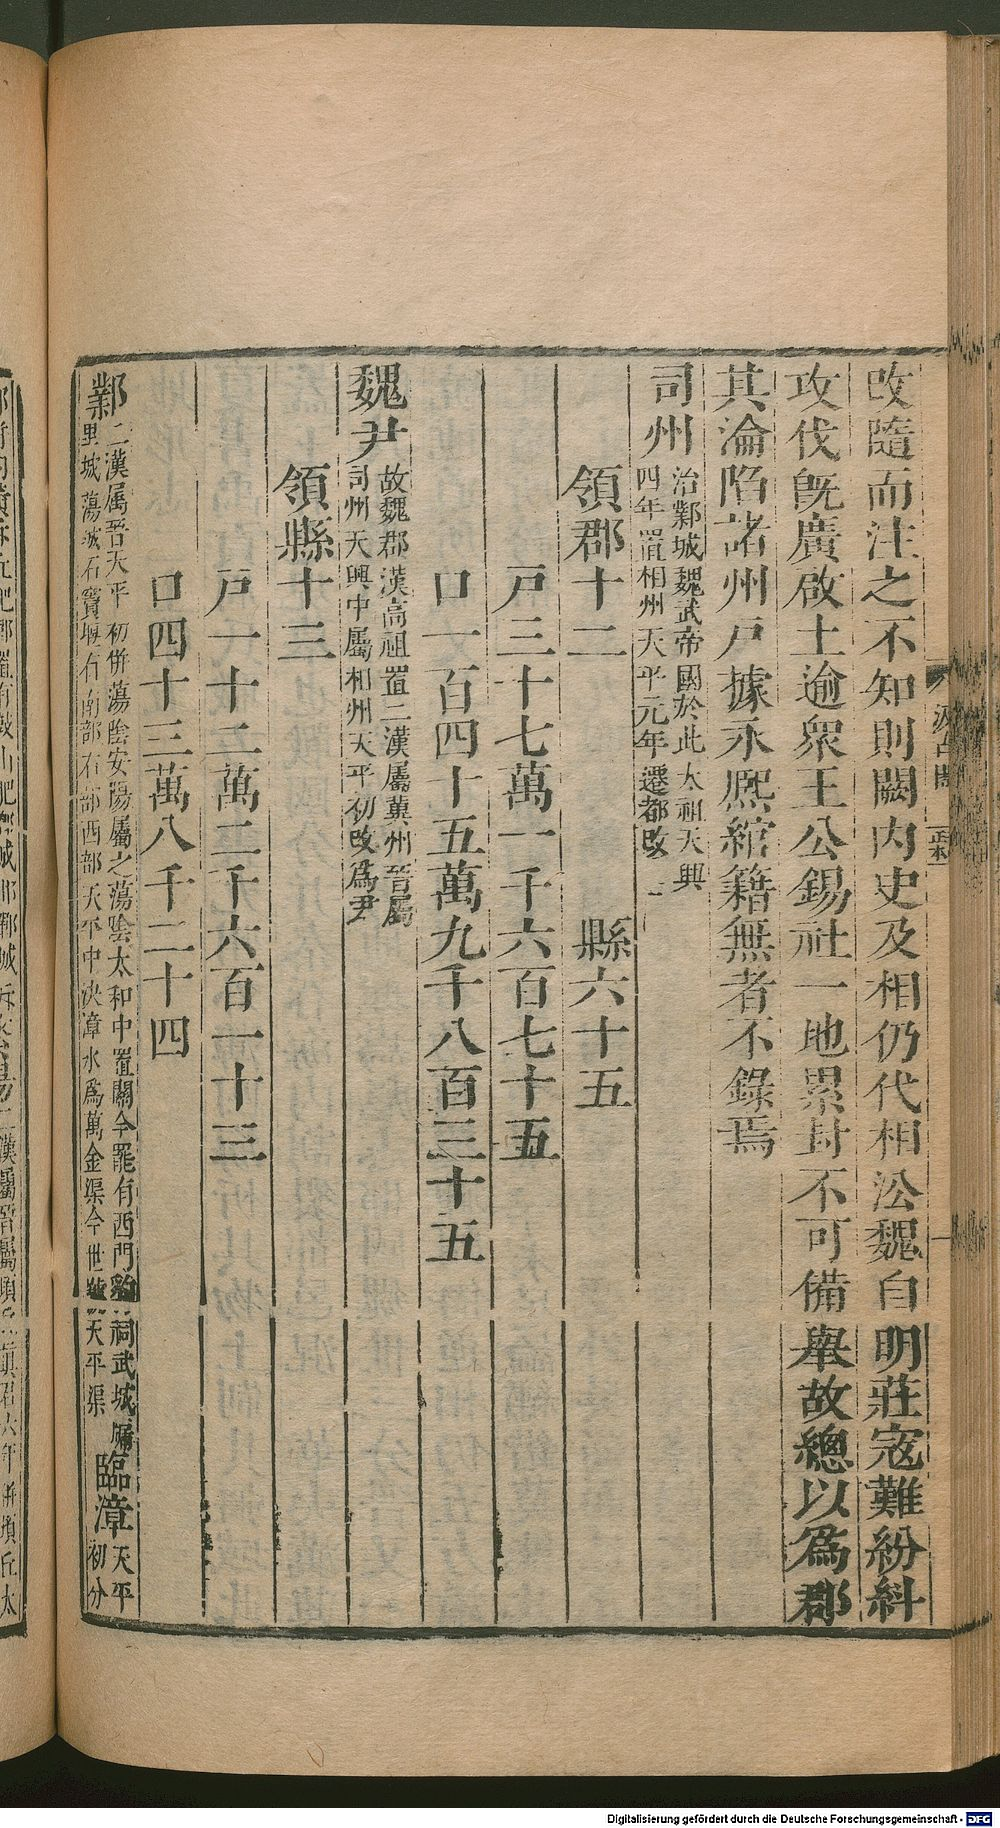 改隨而注之不知則闕內史及相仍代相沿魏自明莊寇難紛糾
攻伐旣廣啟土逾衆王公錫社一地累封不可備舉故總以爲郡
其淪陷諸州戸據永熙綰籍無者不錄焉
司州
治鄴城魏武帝國於此太祖天興
四年置相州天平元年遷都改
領郡十二 縣六十五
戸三十七萬一千六百七十五
口一百四十五萬九千八百三十五
魏尹
故魏郡漢高祖置二漢屬冀州晉屬
司州天興中屬相州天平初改爲尹
領縣十三
戸一十二萬二千六百一十三
口四十三萬八千二十四
鄴
二漢屬晉天平初併蕩陰安陽屬之蕩陰太和中置關今罷有西門豹祠武城
里城蕩城石竇堰有南部右部西部天平中決漳水爲萬金渠今世號天平渠
臨漳
天平
初分
Digitalisierung gefördert durch die Deutsche Forschungsgemeinschaft - DFG